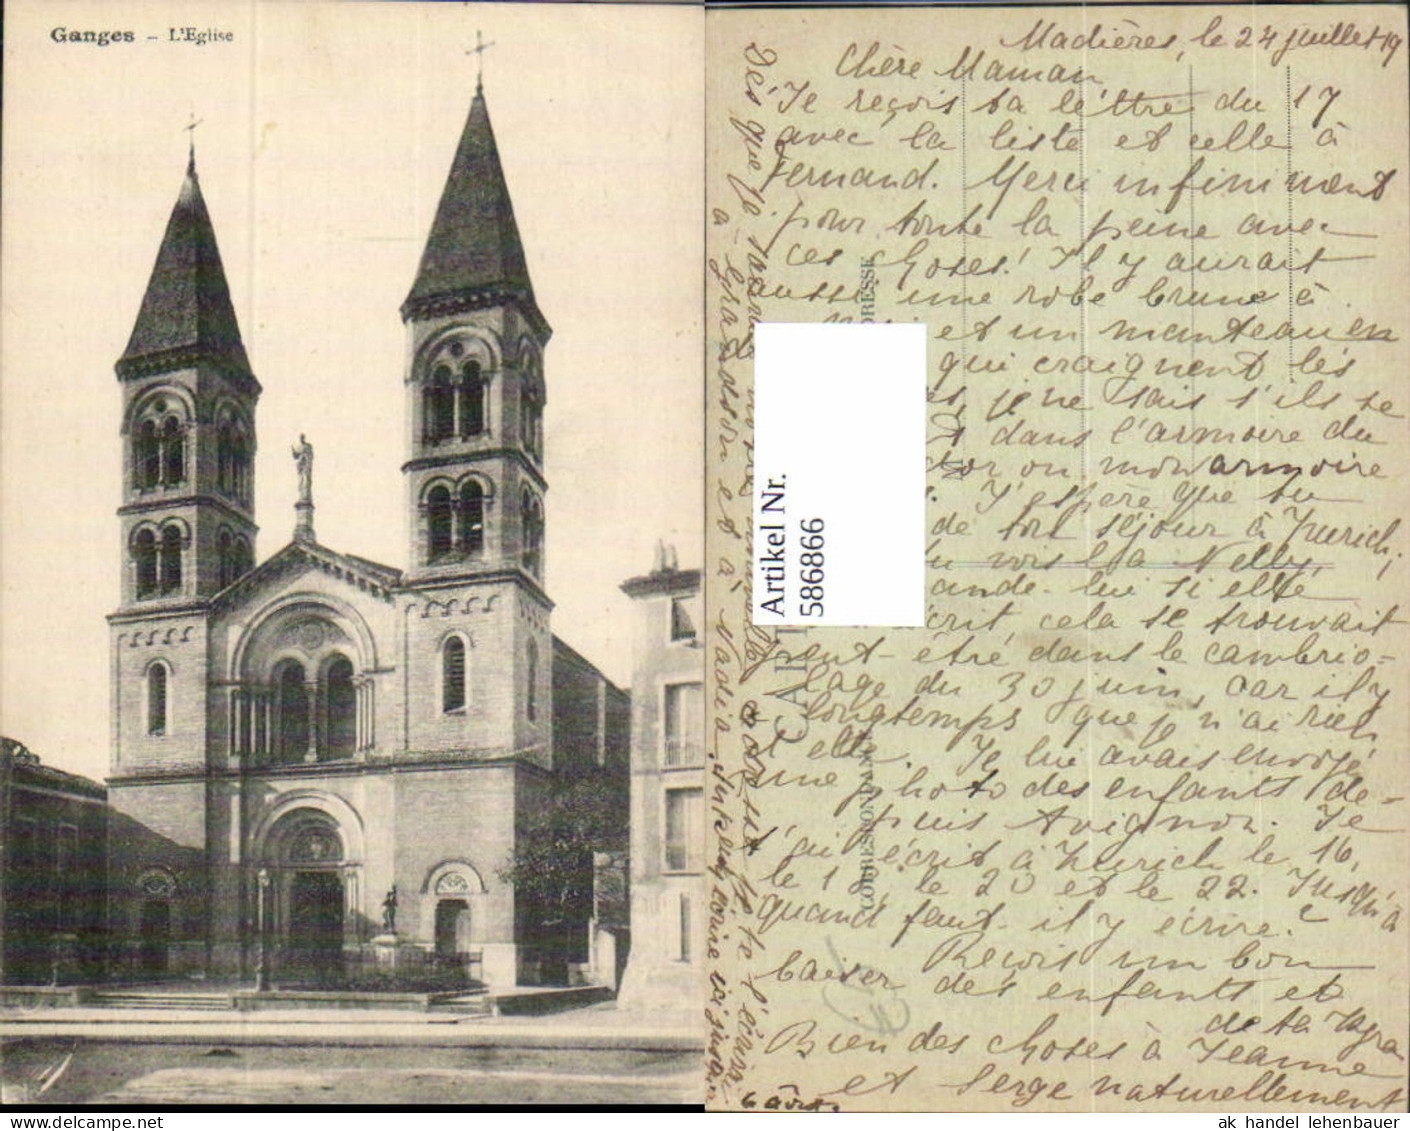 Ganges – L'Eglise
Madières, le 24 juillet 19
Chère Maman
Je reçois ta lettre du 17
avec la liste et celle à
Fernand. Merci infiniment
pour toute la peine avec
ces choses! Il y aurait
aussi une robe brune à
et un manteau en
qui craignent les
je ne sais s'ils se
dans l'armoire du
ou mon armoire
J'espère que tu
de ton séjour à Zurich,
tu vois la Nelly,
ande-lui si elle
écrit cela se trouvait
peut-être dans le cambrio-
lage du 30 juin, car il y
longtemps que je n'ai rien
d'elle. Je lui avais envoyé
une photo des enfants de-
puis Avignon. Je
t'ai écrit à Zurich le 16,
le 18, le 20 et le 22. Jusqu'à
quand faut-il y écrire?
Reçois un bon
baiser des enfants et
de ta
Bien des choses à Jeanne
et Serge naturellement
Dès que je
je te l'écrirai
à grandson et à Nadia
ici jusqu'au
6 août.
CARTE
CORRESPONDANCE
ADRESSE
Artikel Nr.
586866
ak handel lehenbauer